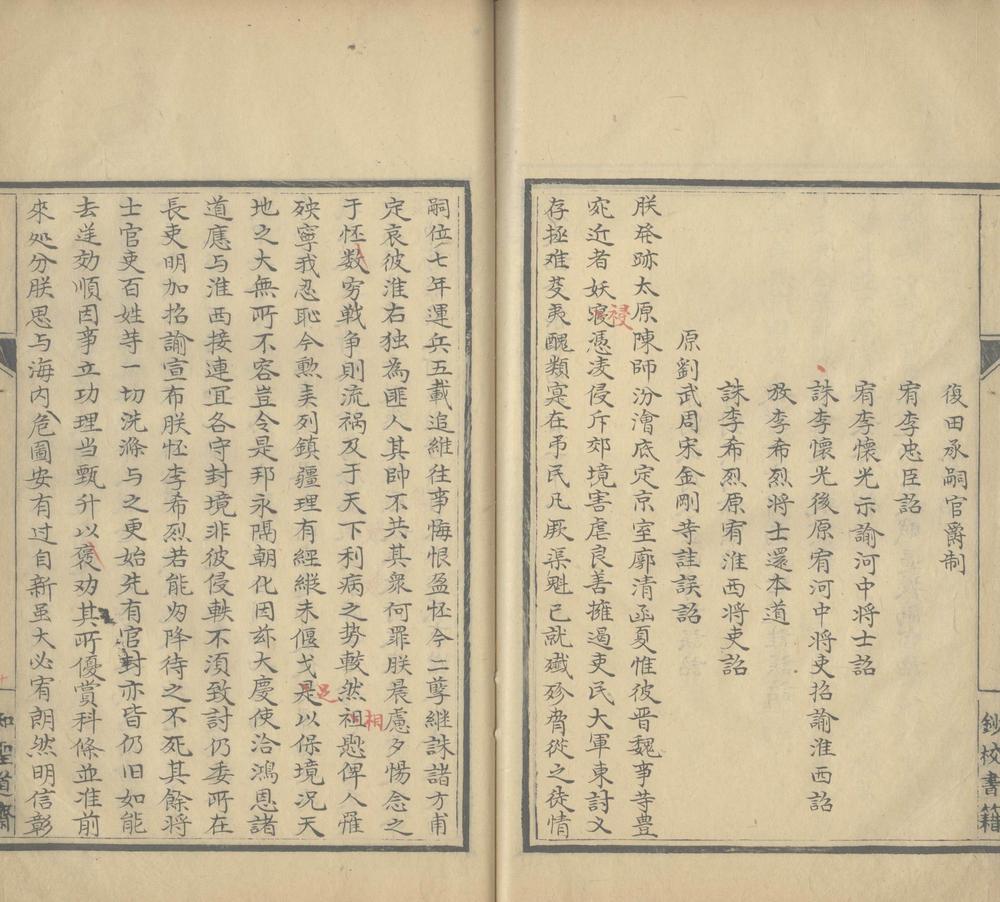 鈔校書籍
復田承嗣官爵制
宥李忠臣詔
宥李懷光示諭河中将士詔
誅李懷光後原宥河中将吏招諭淮西詔
放李希烈将士還本道
誅李希烈原宥淮西将吏詔
原劉武周宋金剛等詿誤詔
朕発跡太原陳師汾澮底定京室廓清函夏惟彼晋魏事等豊
宛近者妖寢祲憑凌侵斥郊境害虐良善擁遏吏民大軍東討义
存拯难芟夷醜類寔在弔民凡厥渠魁已就殱殄脅從之徒情
嗣位七年運兵五載追維往事悔恨盈怀今二孽継誅諸方甫
定哀彼淮右独為匪人其帥不共其衆何罪朕晨慮夕惕念之
于怀数穷戦争則流祸及于天下利病之势較然祖相懸俾人罹
殃寧我忍恥今勲㚖列鎮疆理有經縦未偃戈是足以保境況天
地之大無所不容豈令是邦永隔朝化因玆大慶使洽鴻恩諸
道應与淮西接連宜各守封境非彼侵軼不須致討仍委所在
長吏明加招諭宣布朕怀李希烈若能为降待之不死其餘将
士官吏百姓等一切洗滌与之更始先有官封亦皆仍旧如能
去逆効順因事立功理当甄升以褒劝其所優賞科條並准前
來処分朕思与海内危圖安有过自新虽大必宥朗然明信彰
知聖道齋